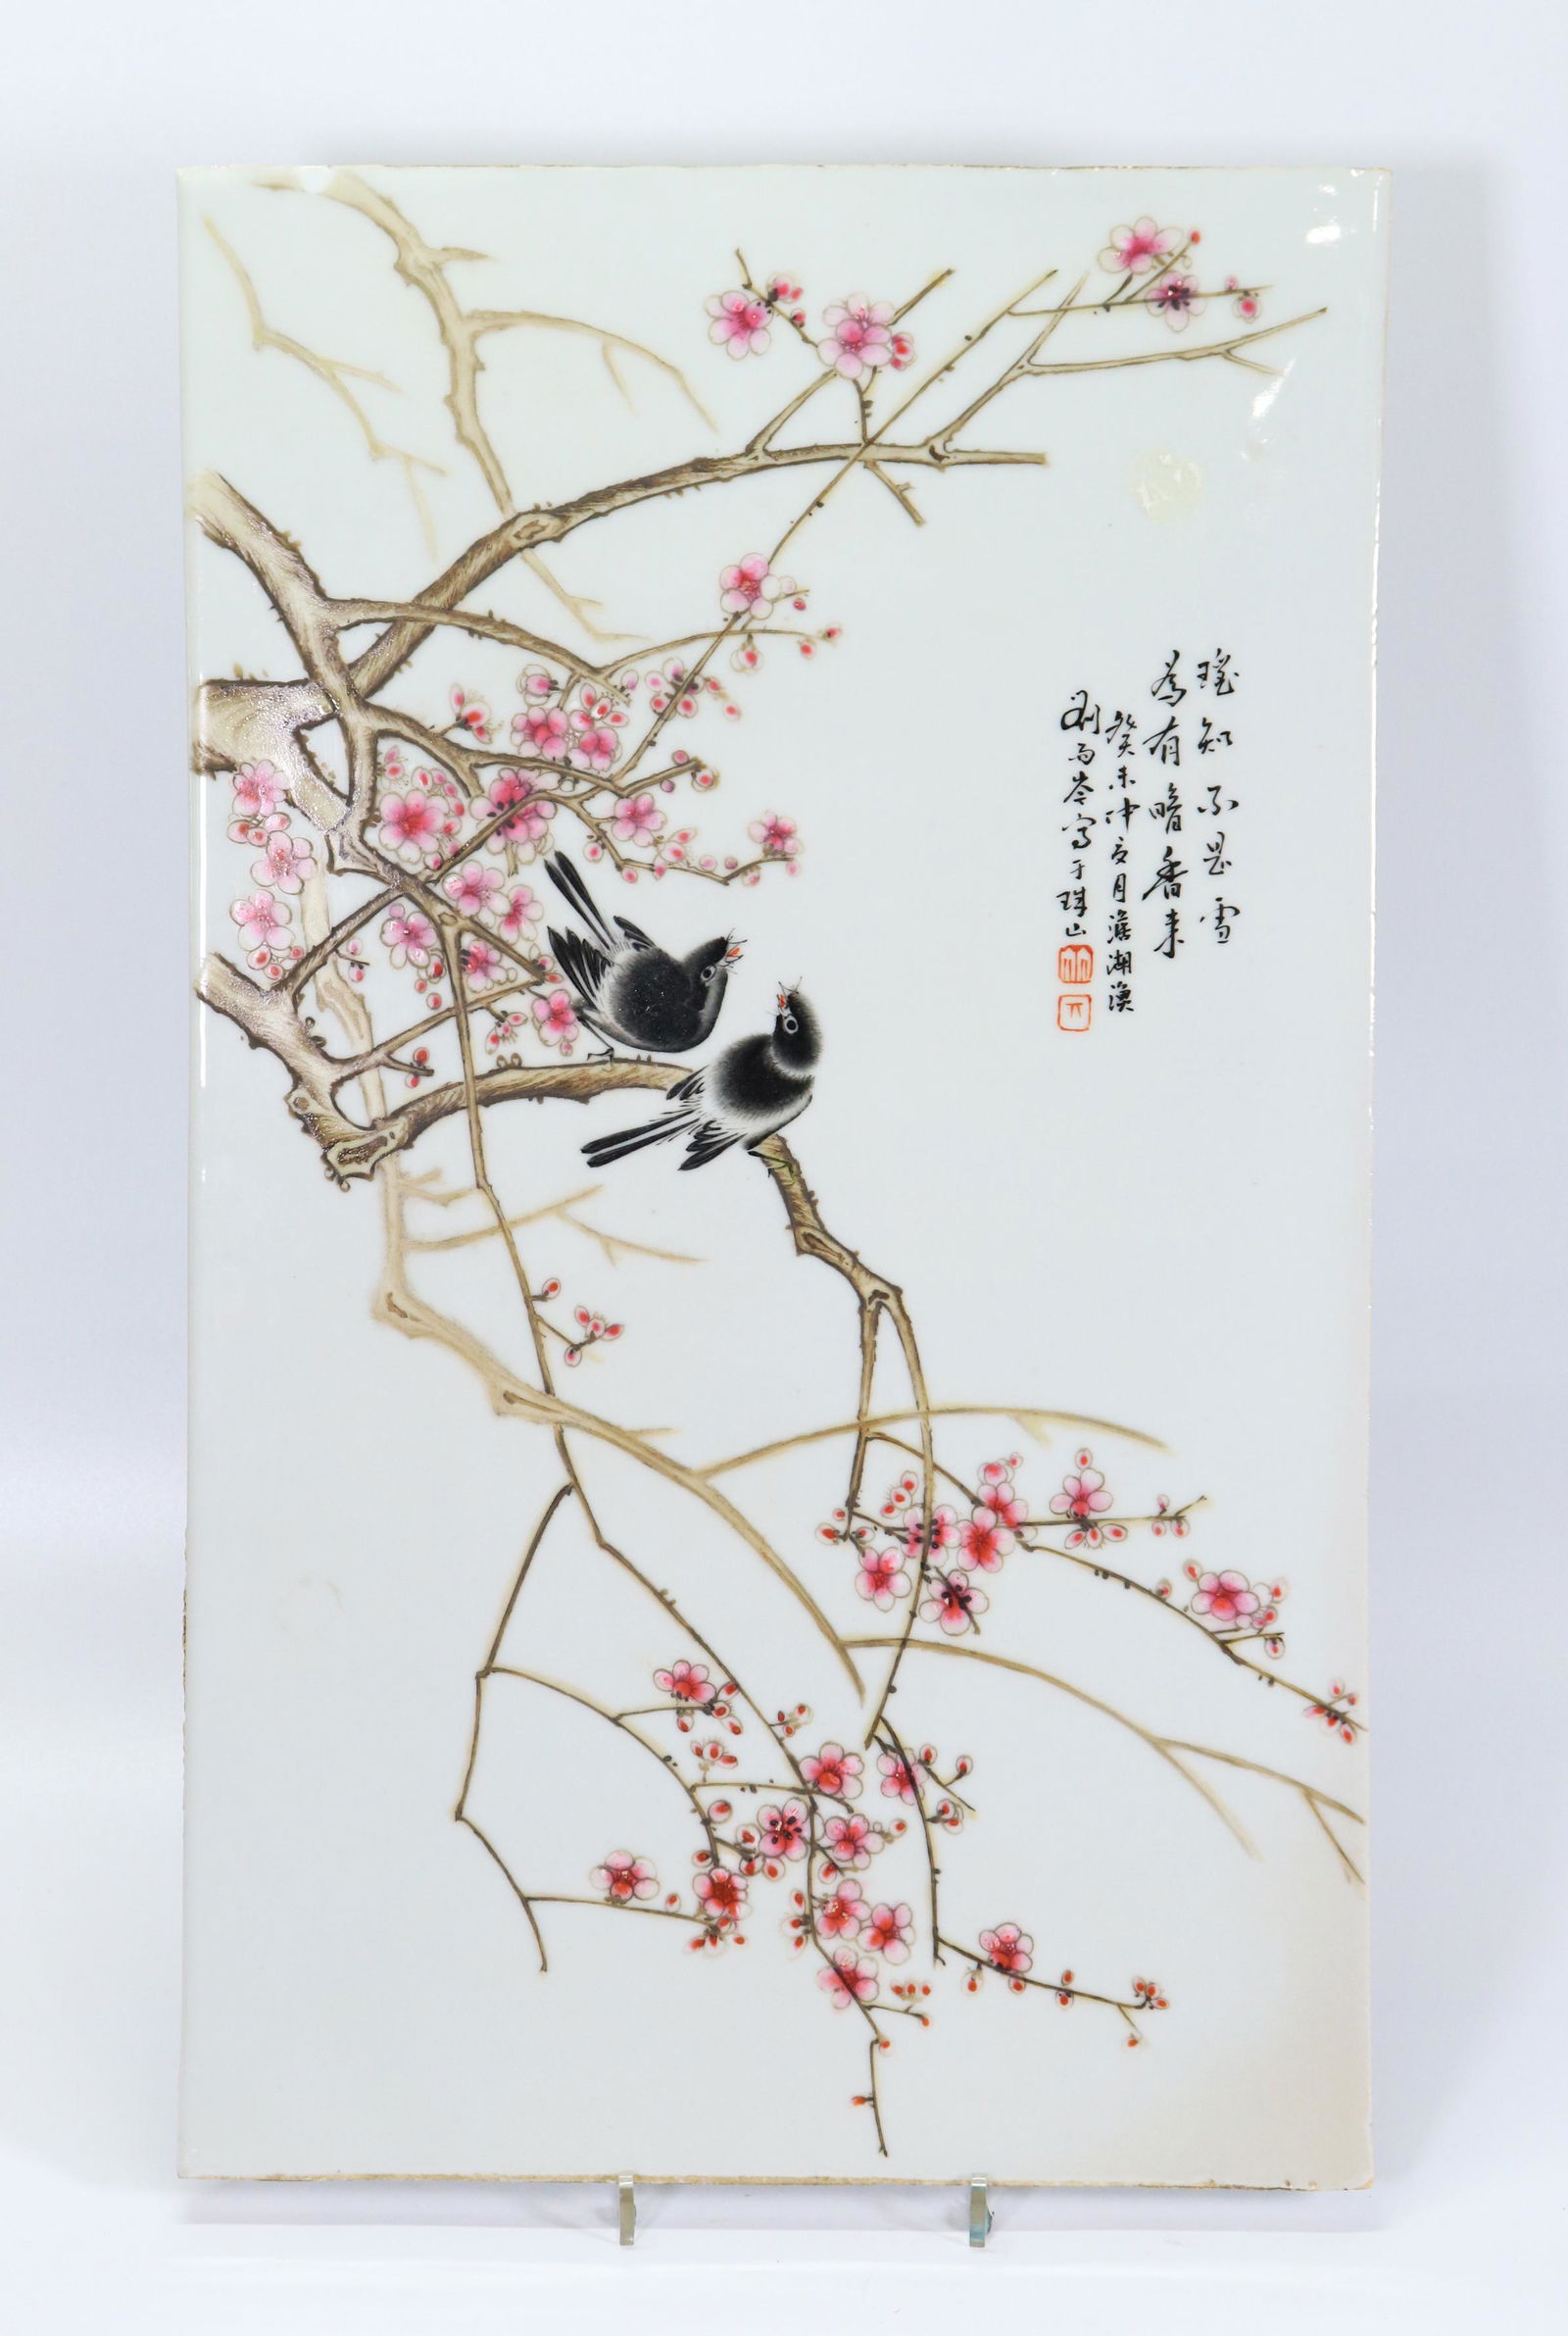 瑤知不是雪
為有暗香来
癸未仲夏月澹湖漁
劉雨岑寫于珠山